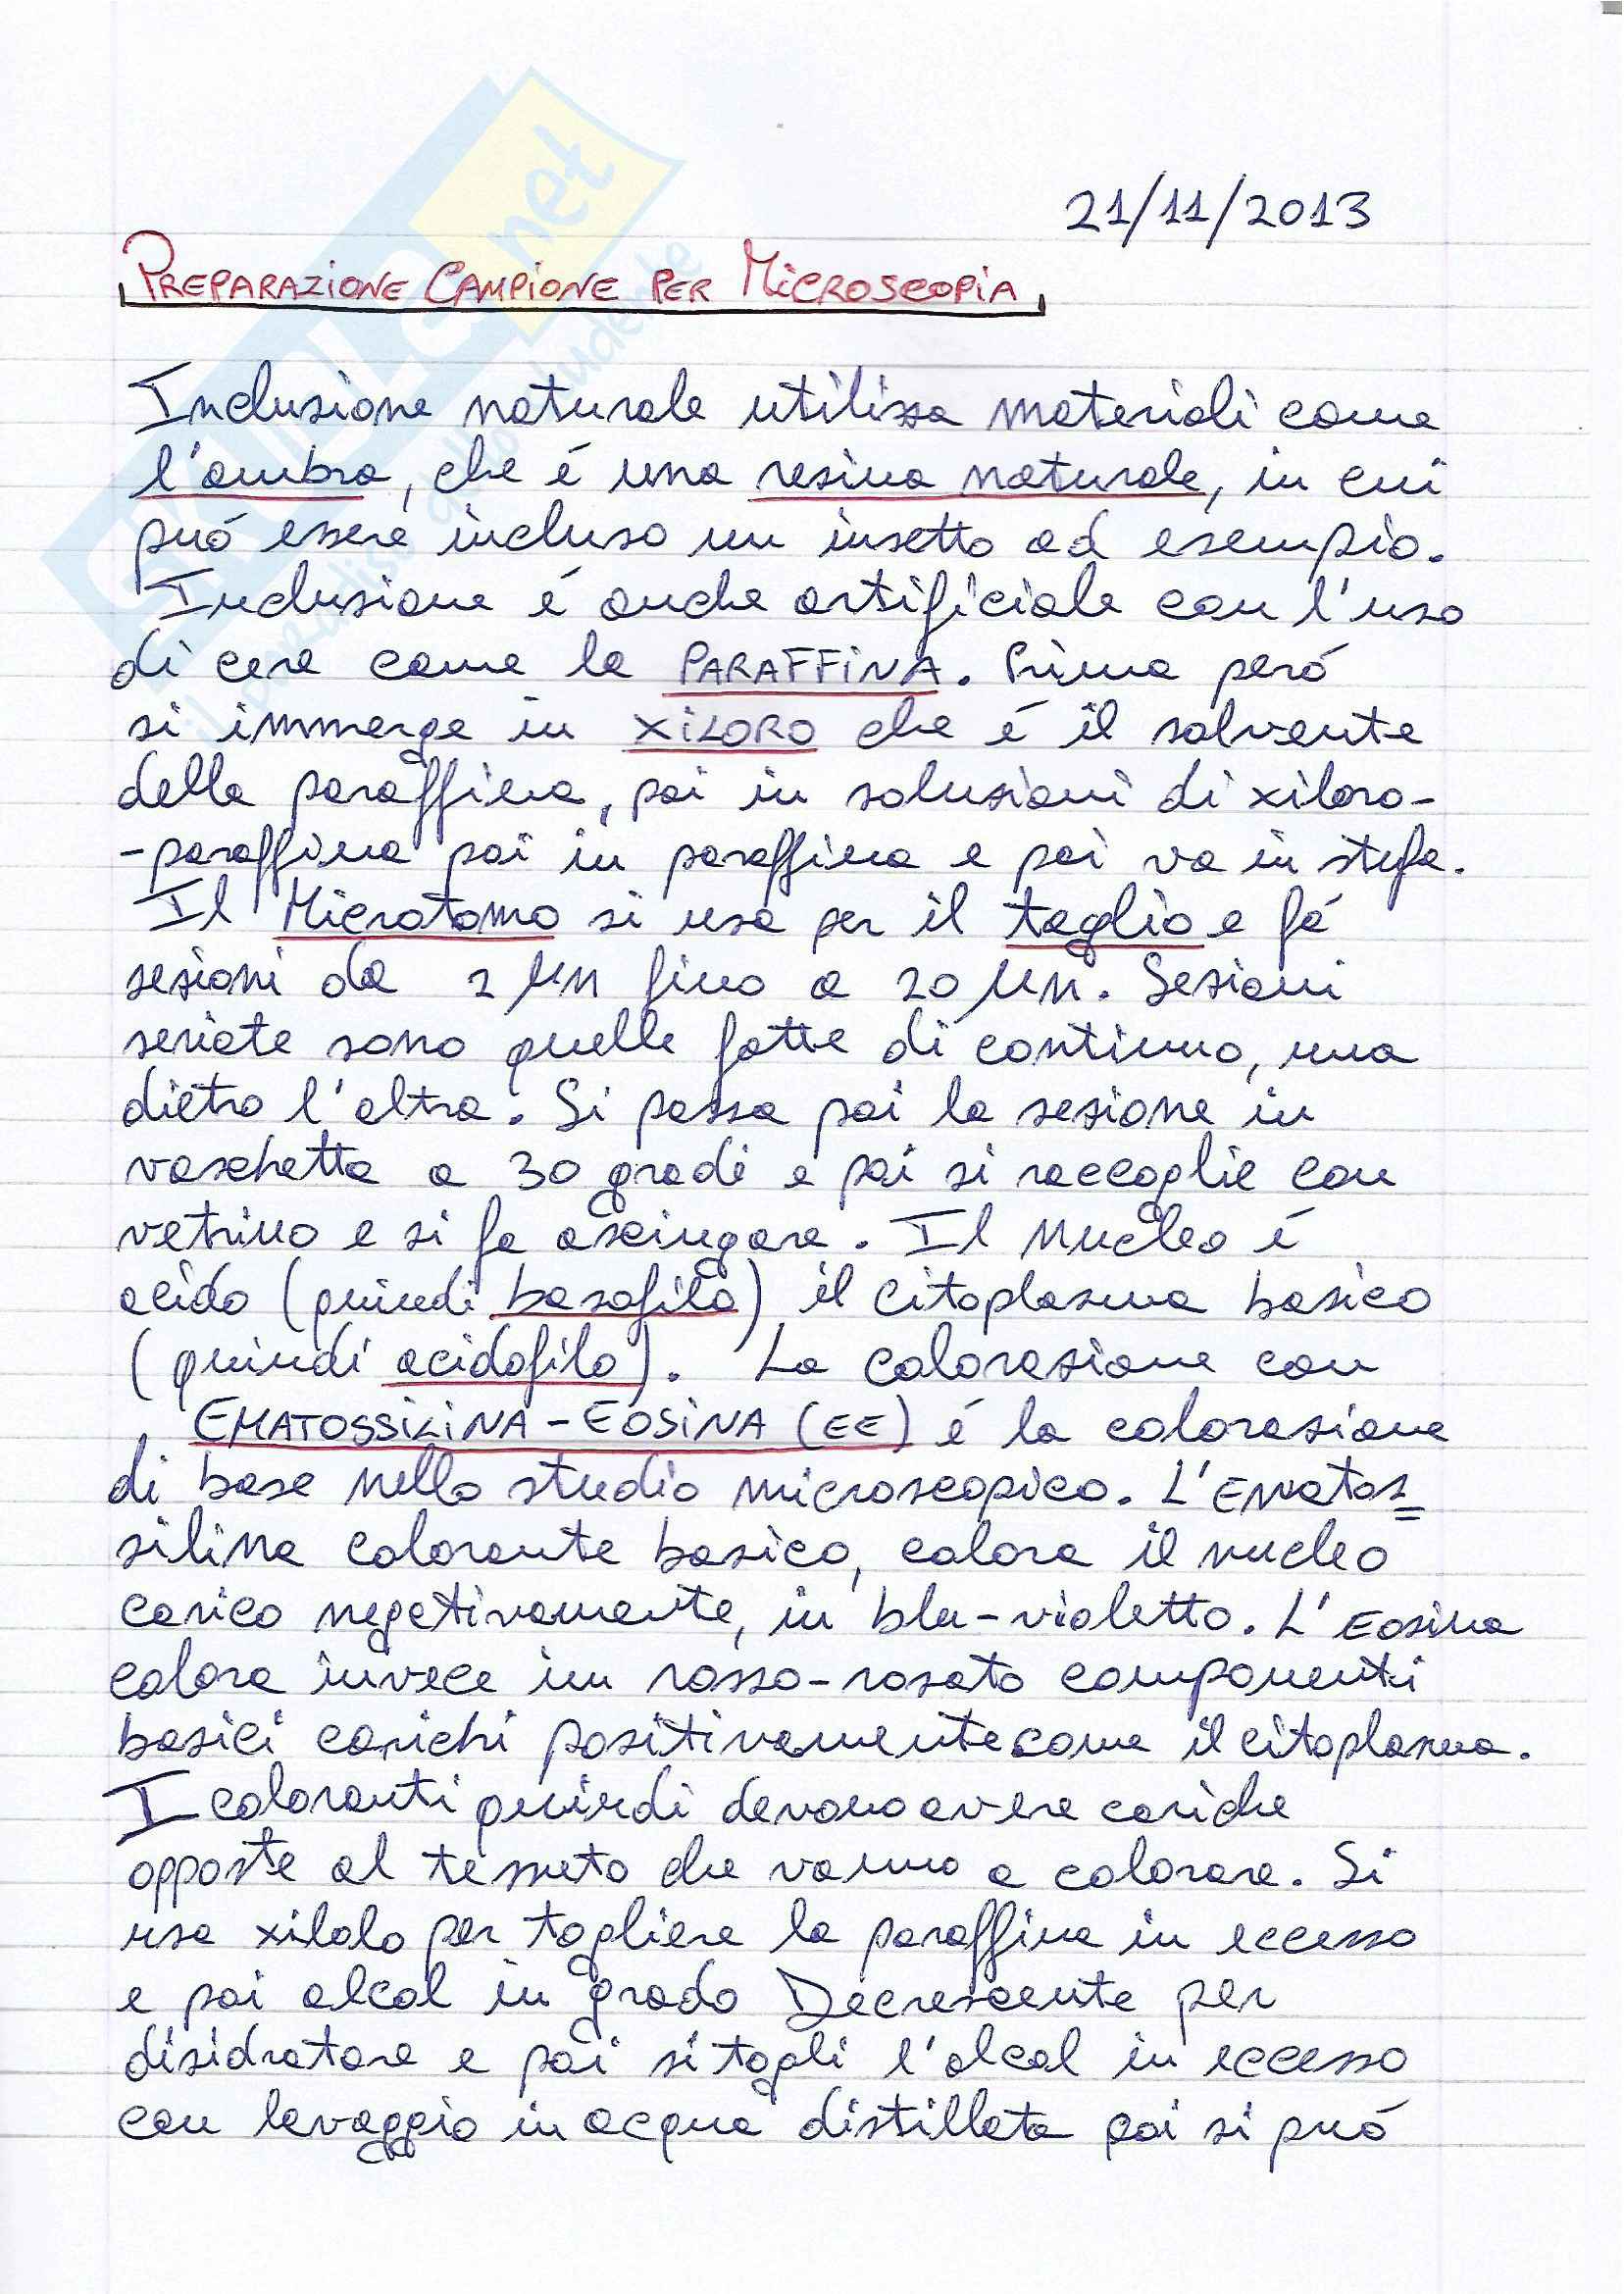 21/11/2013
PREPARAZIONE CAMPIONE PER MICROSCOPIA
Inclusione naturale utilizza materiali come
l'ambra, che é una resina naturale, in cui
puó essere incluso un insetto ad esempio.
Inclusione é anche artificiale con l'uso
di cera come la PARAFFINA. Prima peró
si immerge in XILORO che é il solvente
della paraffina, poi in soluzioni di xiloro-
-paraffina poi in paraffina e poi va in stufa.
Il Microtomo si usa per il taglio e fá
sezioni da 2 μm fino a 20 μm. Sezioni
seriate sono quelle fatte di continuo, una
dietro l'altra. Si passa poi la sezione in
vaschetta a 30 gradi e poi si raccoglie con
vetrino e si fa asciugare. Il nucleo é
acido (quindi basofilo) il citoplasma basico
(quindi acidofilo). La colorazione con
EMATOSSILINA-EOSINA (EE) é la colorazione
di base nello studio microscopico. L'Ematos=
silina colorante basico, colora il nucleo
carico negativamente, in blu-violetto. L'Eosina
colora invece in rosso-rosato componenti
basici carichi positivamente come il citoplasma.
I coloranti quindi devono avere cariche
opposte al tessuto che vanno a colorare. Si
usa xilolo per togliere la paraffina in eccesso
e poi alcol in grado Decrescente per
disidratare e poi si togli l'alcol in eccesso
con lavaggio in acqua distillata poi si puó
net